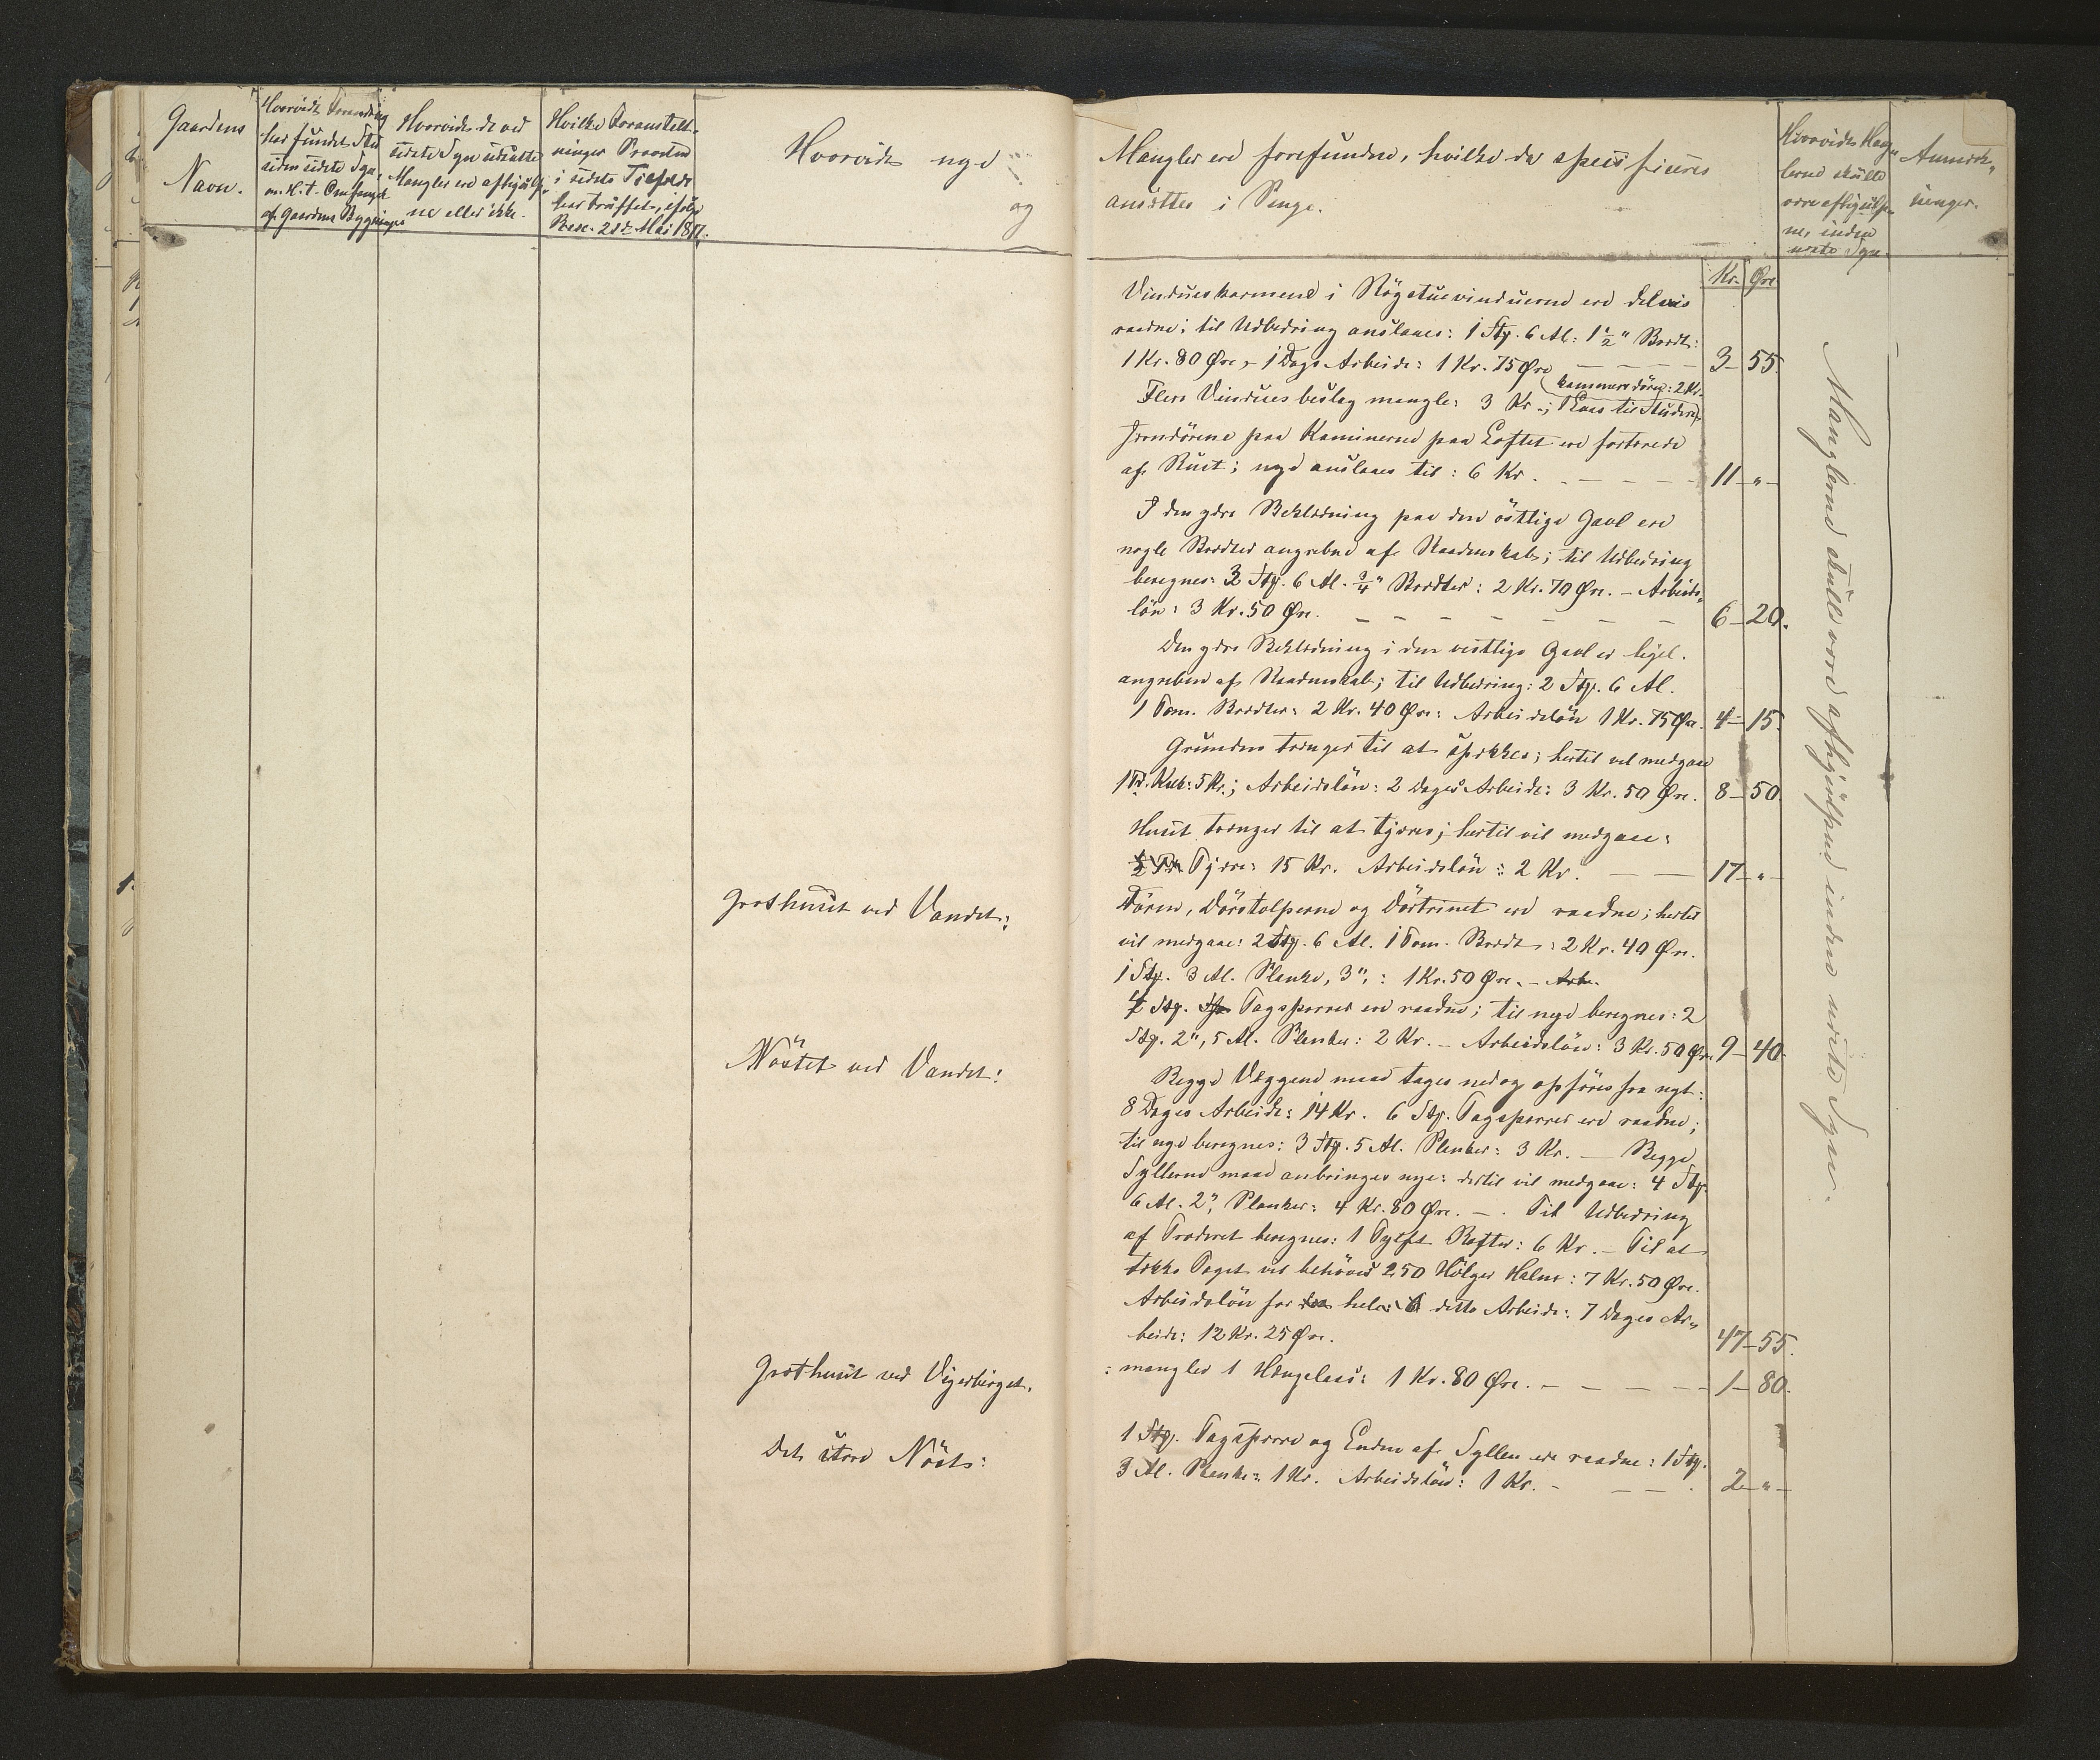 Gaardens
Navn.
Hvorvidt Forandring
har fundet Sted
siden sidste Syn,
m. H. t. Omfanget
af Gaardens Bygninger
Hvorvidt de ved
sidste Syn udsatte
Mangler ere afhjulp-
ne eller ikke.
Hvilke Foranstalt-
ninger Provsten
i sidste Tilfælde
har truffet, ifølge
Resc. 21de Mai 18
Hvorvidt nye
og
Mangler ere forefundne, hvilke da specificeres
ansættes i Penge.
Hvorvidt Mang-
lerne skulle
være afhjulp-
ne, inden
næste Syn.
Anmærk-
ninger.
Kr. Øre
Vindueskarmene i Røgstuevinduerne ere delvis
raadne; til Udbedring anslaaes: 1 Stk. 6 Al. 1½" Bordt:
1 Kr. 80 Øre, - 1 Dags Arbeide: 1 Kr. 75 Øre — — — — 3 — 55.
kammersdøren: 2 Kr.
Flere Vinduesbeslag mangle: 3 Kr.; 1 Laas til Studere-
Jerndörene paa Kaminerne paa Loftet ere fortærede
af Rust; nye anslaaes til: 6 Kr. — — — — 11 — " —
I den ydre Beklædning paa den östlige Gavl ere
nogle Bordter angrebne af Raadenskab; til Udbedring
beregnes: 3 Stk. 6 Al. ¾" Bordter: 2 Kr. 70 Øre. - Arbeids-
lön: 3 Kr. 50 Øre. — — — — — — — 6 — 20.
Den ydre Beklædning i den vestlige Gavl er ligel.
angreben af Raadenskab; til Udbedring: 2 Stk. 6 Al.
1 Tom. Bordter: 2 Kr. 40 Øre: Arbeidslön 1 Kr. 75 Øre. 4 — 15.
Grunden trænger til at spekkes; hertil vil medgaae
1 Td. Kalk: 5 Kr.; Arbeidslön: 2 Dages Arbeide: 3 Kr. 50 Øre. 8 — 50.
Huset trænger til at tjæres; hertil vil medgaae:
½ Td. Tjære: 15 Kr. Arbeidslön: 2 Kr. — — 17 — " —
Grothuset ved Vandet:
Dören, Dörstolperne og Dörtrinet ere raadne; hertil
vil medgaae: 2 Stk. 6 Al. 1 Tom. Bordt: 2 Kr. 40 Øre.
1 Stk. 3 Al. Planke, 3",: 1 Kr. 50 Øre. - Arb.
4 Stk. Tagsperrer ere raadne; til nye beregnes: 2
Stk. 2", 5 Al. Planker: 2 Kr. — Arbeidslön: 3 Kr. 50 Øre. 9 — 40.
Nöstet ved Vandet:
Begge Væggene maae tages ned og opföres fra nyt:
8 Dages Arbeide: 14 Kr. 6 Stk. Tagsperrer ere raadne;
til nye beregnes: 3 Stk. 5 Al. Planker: 3 Kr. — Begge
Syllerne maae anbringes nye: dertil vil medgaae: 4 Stk.
6 Al. 2", Planker: 4 Kr. 80 Øre. — . Til Udbedring
af Troderet beregnes: 1 Tylft Rafter: 6 Kr. — Til at
tække Taget vil behöves 250 Hölger Halm: 7 Kr. 50 Øre.
Arbeidslön for hele dette Arbeide: 7 Dages Ar-
beide: 12 Kr. 25 Øre. 47 — 55.
Grothuset ved Vigerbirget.
: mangler 1 Hængelaas: 1 Kr. 80 Øre. — — — — 1 — 80.
Det store Nöst:
1 Stk. Tagsperre og Enden af Syllen ere raadne: 1 Stk.
3 Al. Planke: 1 Kr. Arbeidslön: 1 Kr. — — — 2 — " —
Manglerne skulle være afhjulpne inden næste Syn.